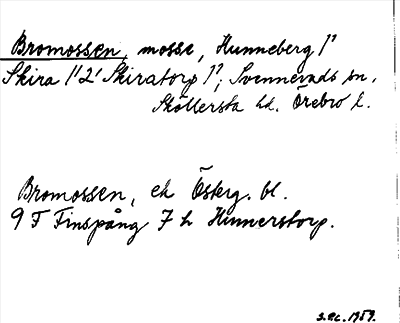 Bromossen, mosse, Hunneberg 1¹
Skira 1¹ 2¹ Skiratorp 1¹; Svennevads sn,
Sköllersta hd. Örebro l.
Bromossen, ek Österg. bl.
9 F Finspång 7 h Hunnerstorp.
1959.